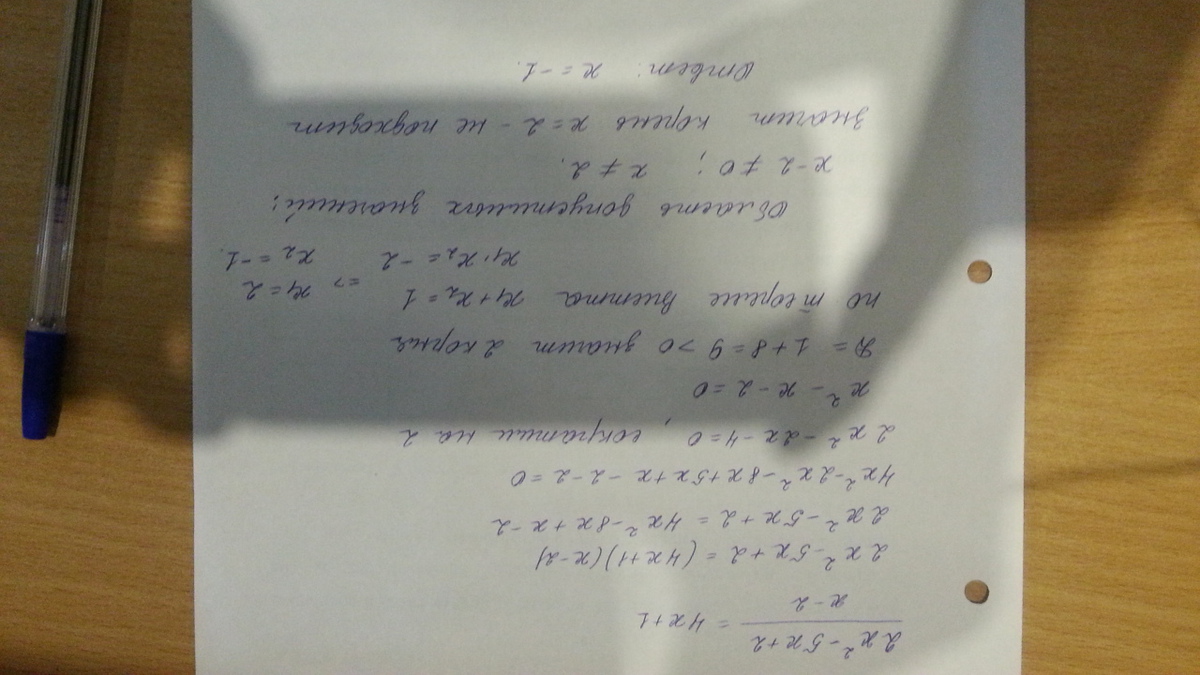 2x² - 5x + 2 / x - 2 = 4x + 1
2x² - 5x + 2 = (4x + 1)(x - 2)
2x² - 5x + 2 = 4x² - 8x + x - 2
4x² - 2x² - 8x + 5x + x - 2 - 2 = 0
2x² - 2x - 4 = 0, сократим на 2
x² - x - 2 = 0
D = 1 + 8 = 9 > 0 значит 2 корня
по теореме Виетта x₁ + x₂ = 1 => x₁ = 2
x₁ · x₂ = -2 x₂ = -1.
Область допустимых значений:
x - 2 ≠ 0; x ≠ 2.
Значит корень x = 2 - не подходит
Ответ: x = -1.